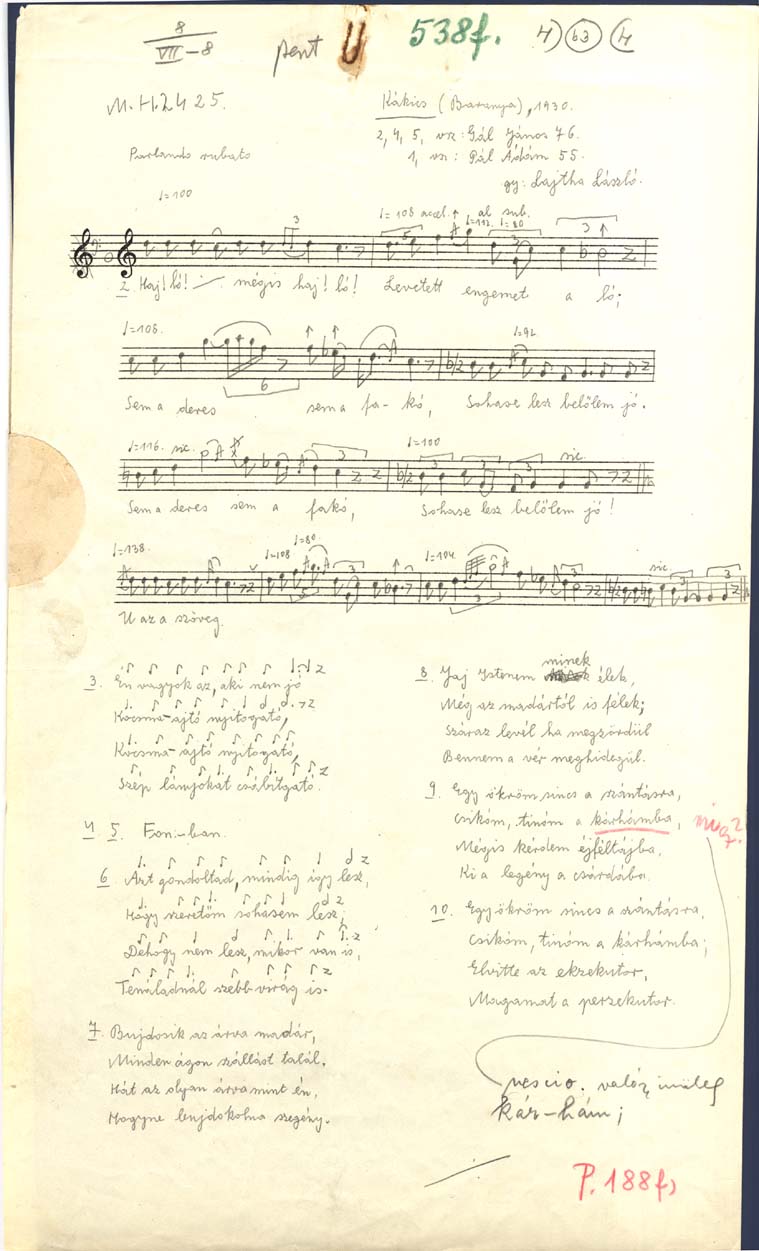 8
VII-8
pent
538f.
4) 63 (4
M.H.2425.
Kákics (Baranya), 1930.
2, 4, 5, vsz: Gál János 76.
1, vsz: Pál Ádám 55.
gy: Lajtha László.
Parlando rubato
♩=100
♩=108 accel. al sub.
♩=112. ♩=80
2 Haj! ló! mégis haj! ló! Levetett engemet a ló;
♩=108.
♩=92
Sem a deres sem a fa-kó, Sohase lesz belőlem jó.
♩=116. sic.
♩=100
sic.
Sem a deres sem a fakó, Sohase lesz belőlem jó!
♩=138.
♩=108
♩=80
♩=104.
sic.
U az a szöveg.
3. Én vagyok az, aki nem jó
Kocsma-ajtó nyitogató,
Kocsma-ajtó nyitogató,
Szép lányokat csábítgató.
4 5. Fon.-ban.
6. Azt gondoltad, mindig így lesz,
Hogy szeretőm sohasem lesz;
Dehogy nem lesz, mikor van is,
Tenáladnál szebb virág is.
7. Bujdosik az árva madár,
Minden ágon szállást talál.
Hát az olyan árva mint én,
Hogyne bujdokolna szegény.
8. Jaj Istenem minek élek,
Még az madártól is félek;
Száraz levél ha megzördül
Bennem a vér meghidegül.
9. Egy ökröm sincs a szántásra,
csikóm, tinóm a kárhámba,
Mégis kérdem éjféltájba,
Ki a legény a csárdába.
10. Egy ökröm sincs a szántásra,
csikóm, tinóm a kárhámba;
Elvitte az ekzekutor,
Magamat a perzekutor.
nescio.
kár-hám;
P. 188f,